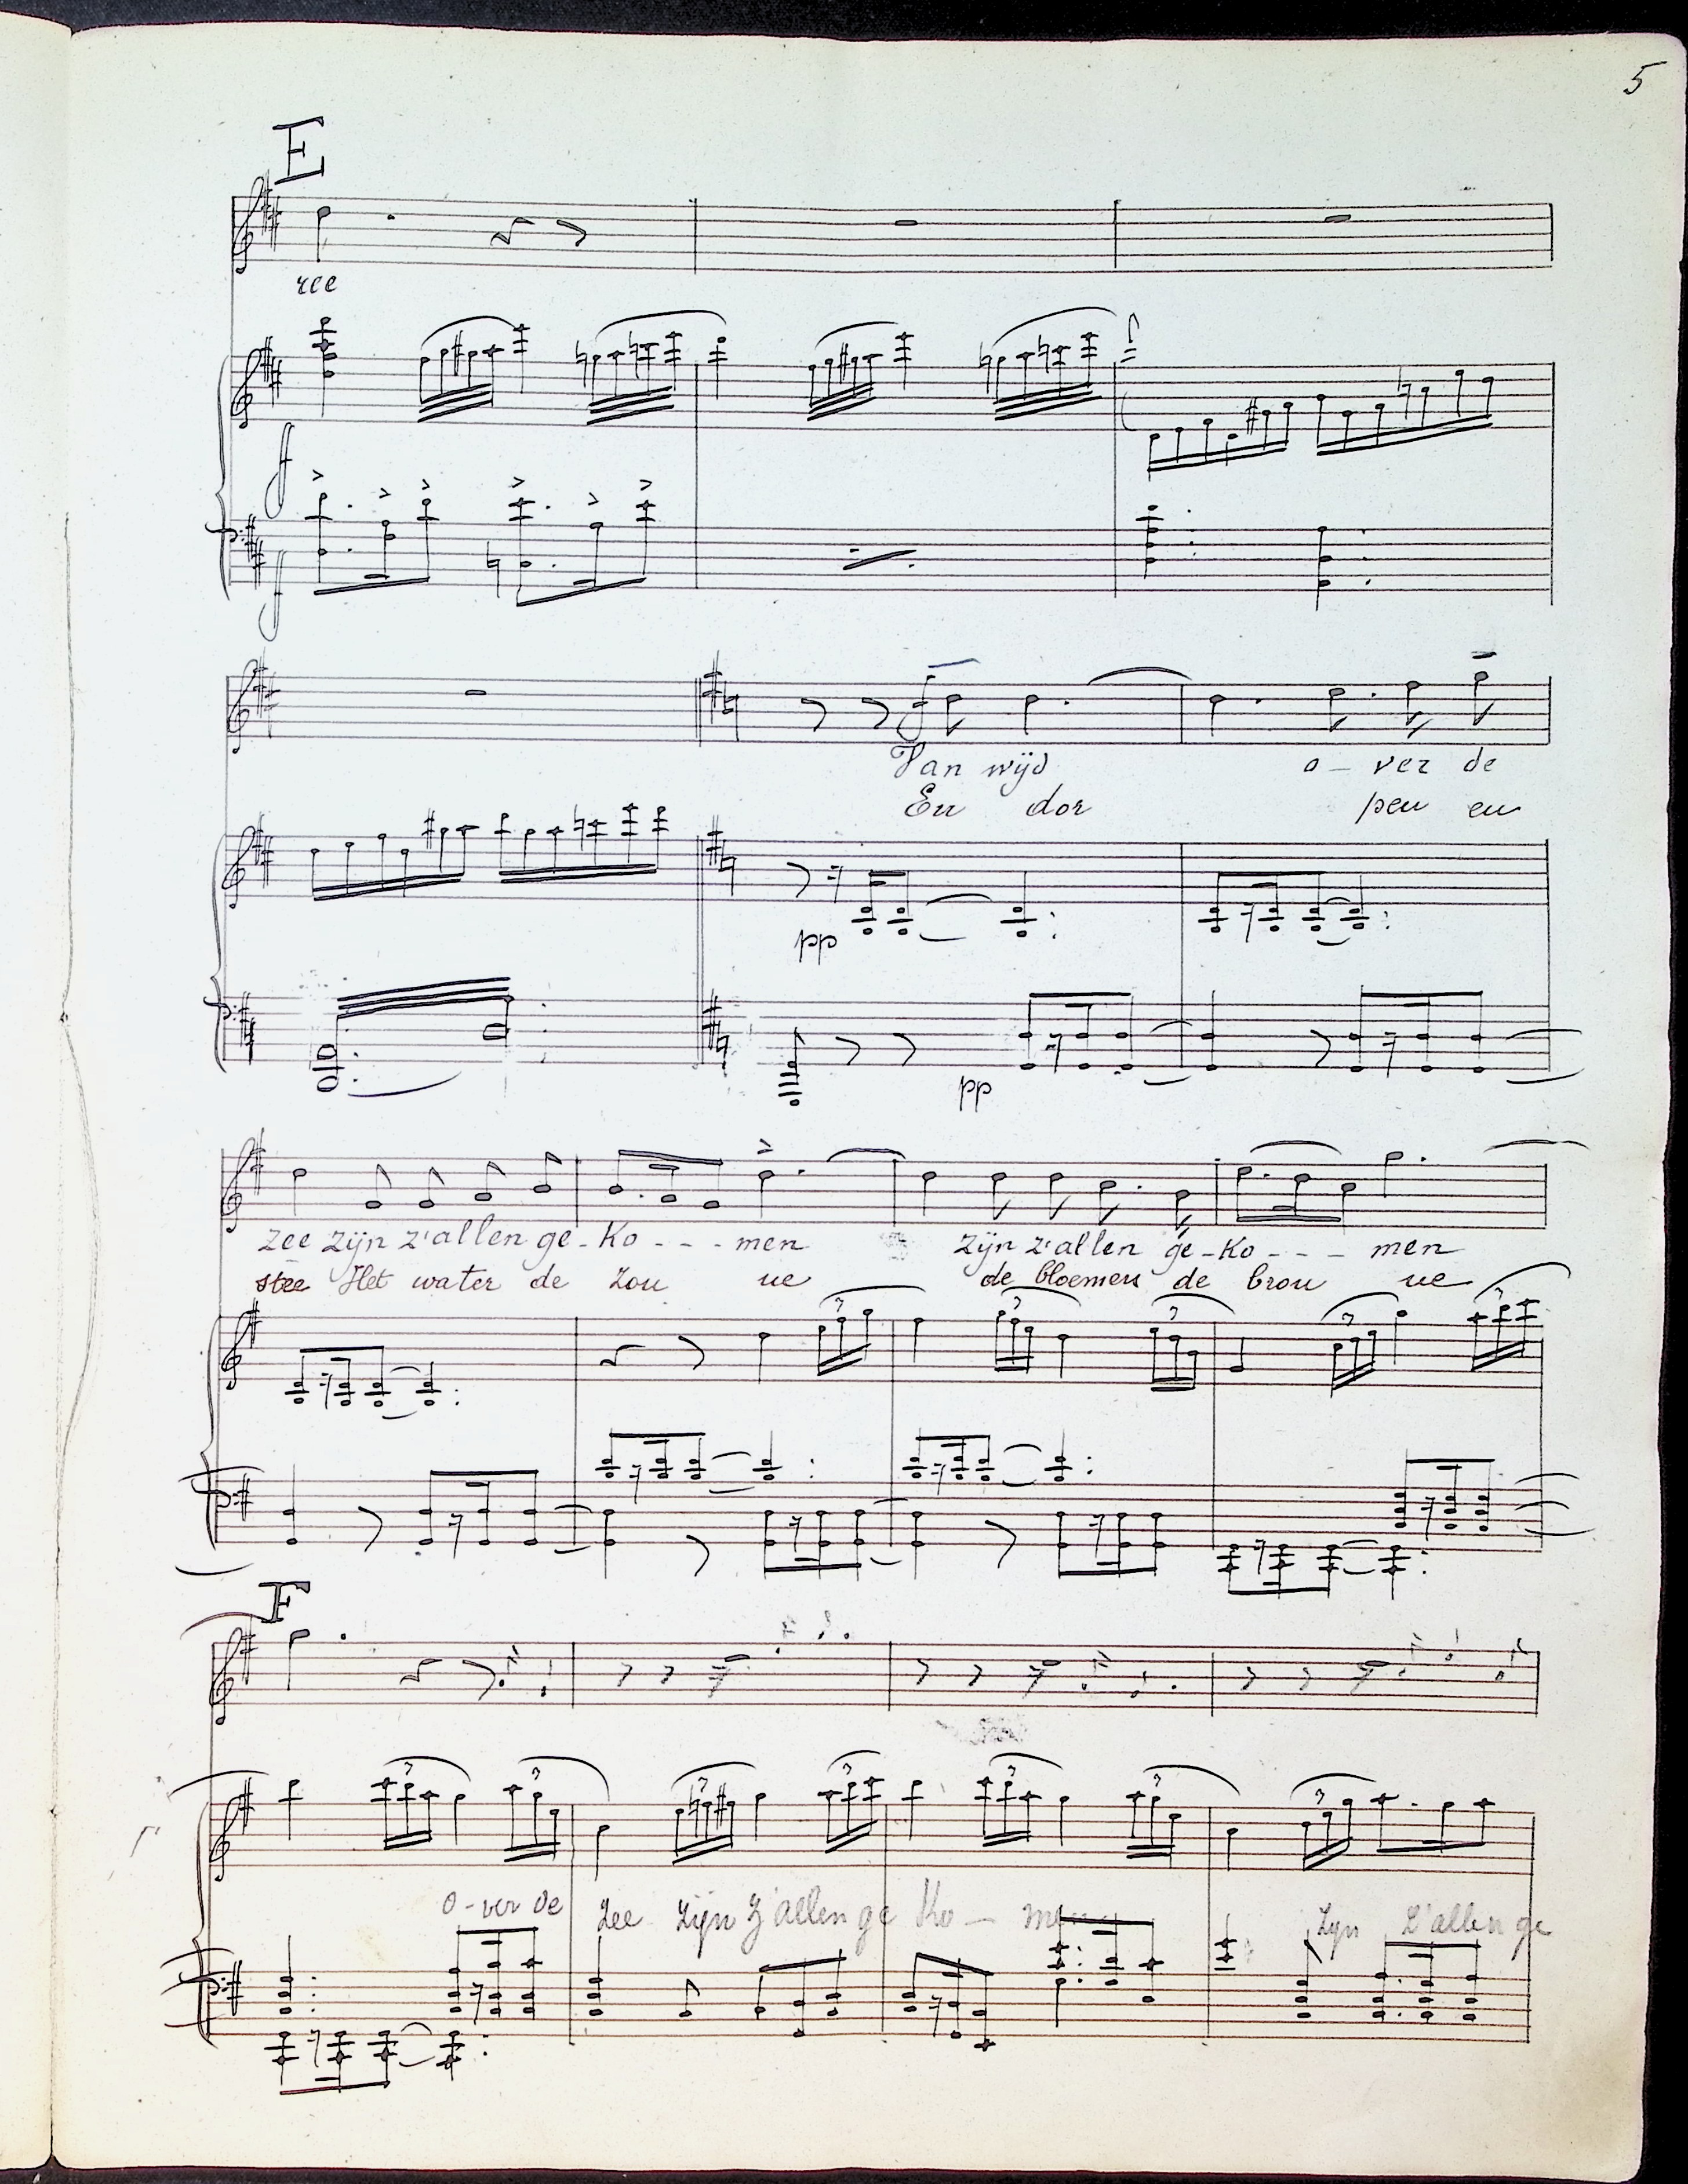 5
E
ree
f
f
Van wijd o - ver de
En dor pen en
pp
pp
zee zijn z'allen ge - ko - - - men zijn z'allen ge - ko - - - men
stee Het water de zon ne de bloemen de brou ne
F
o - ver de zee zijn z'allen ge ko - men zijn z'allen ge